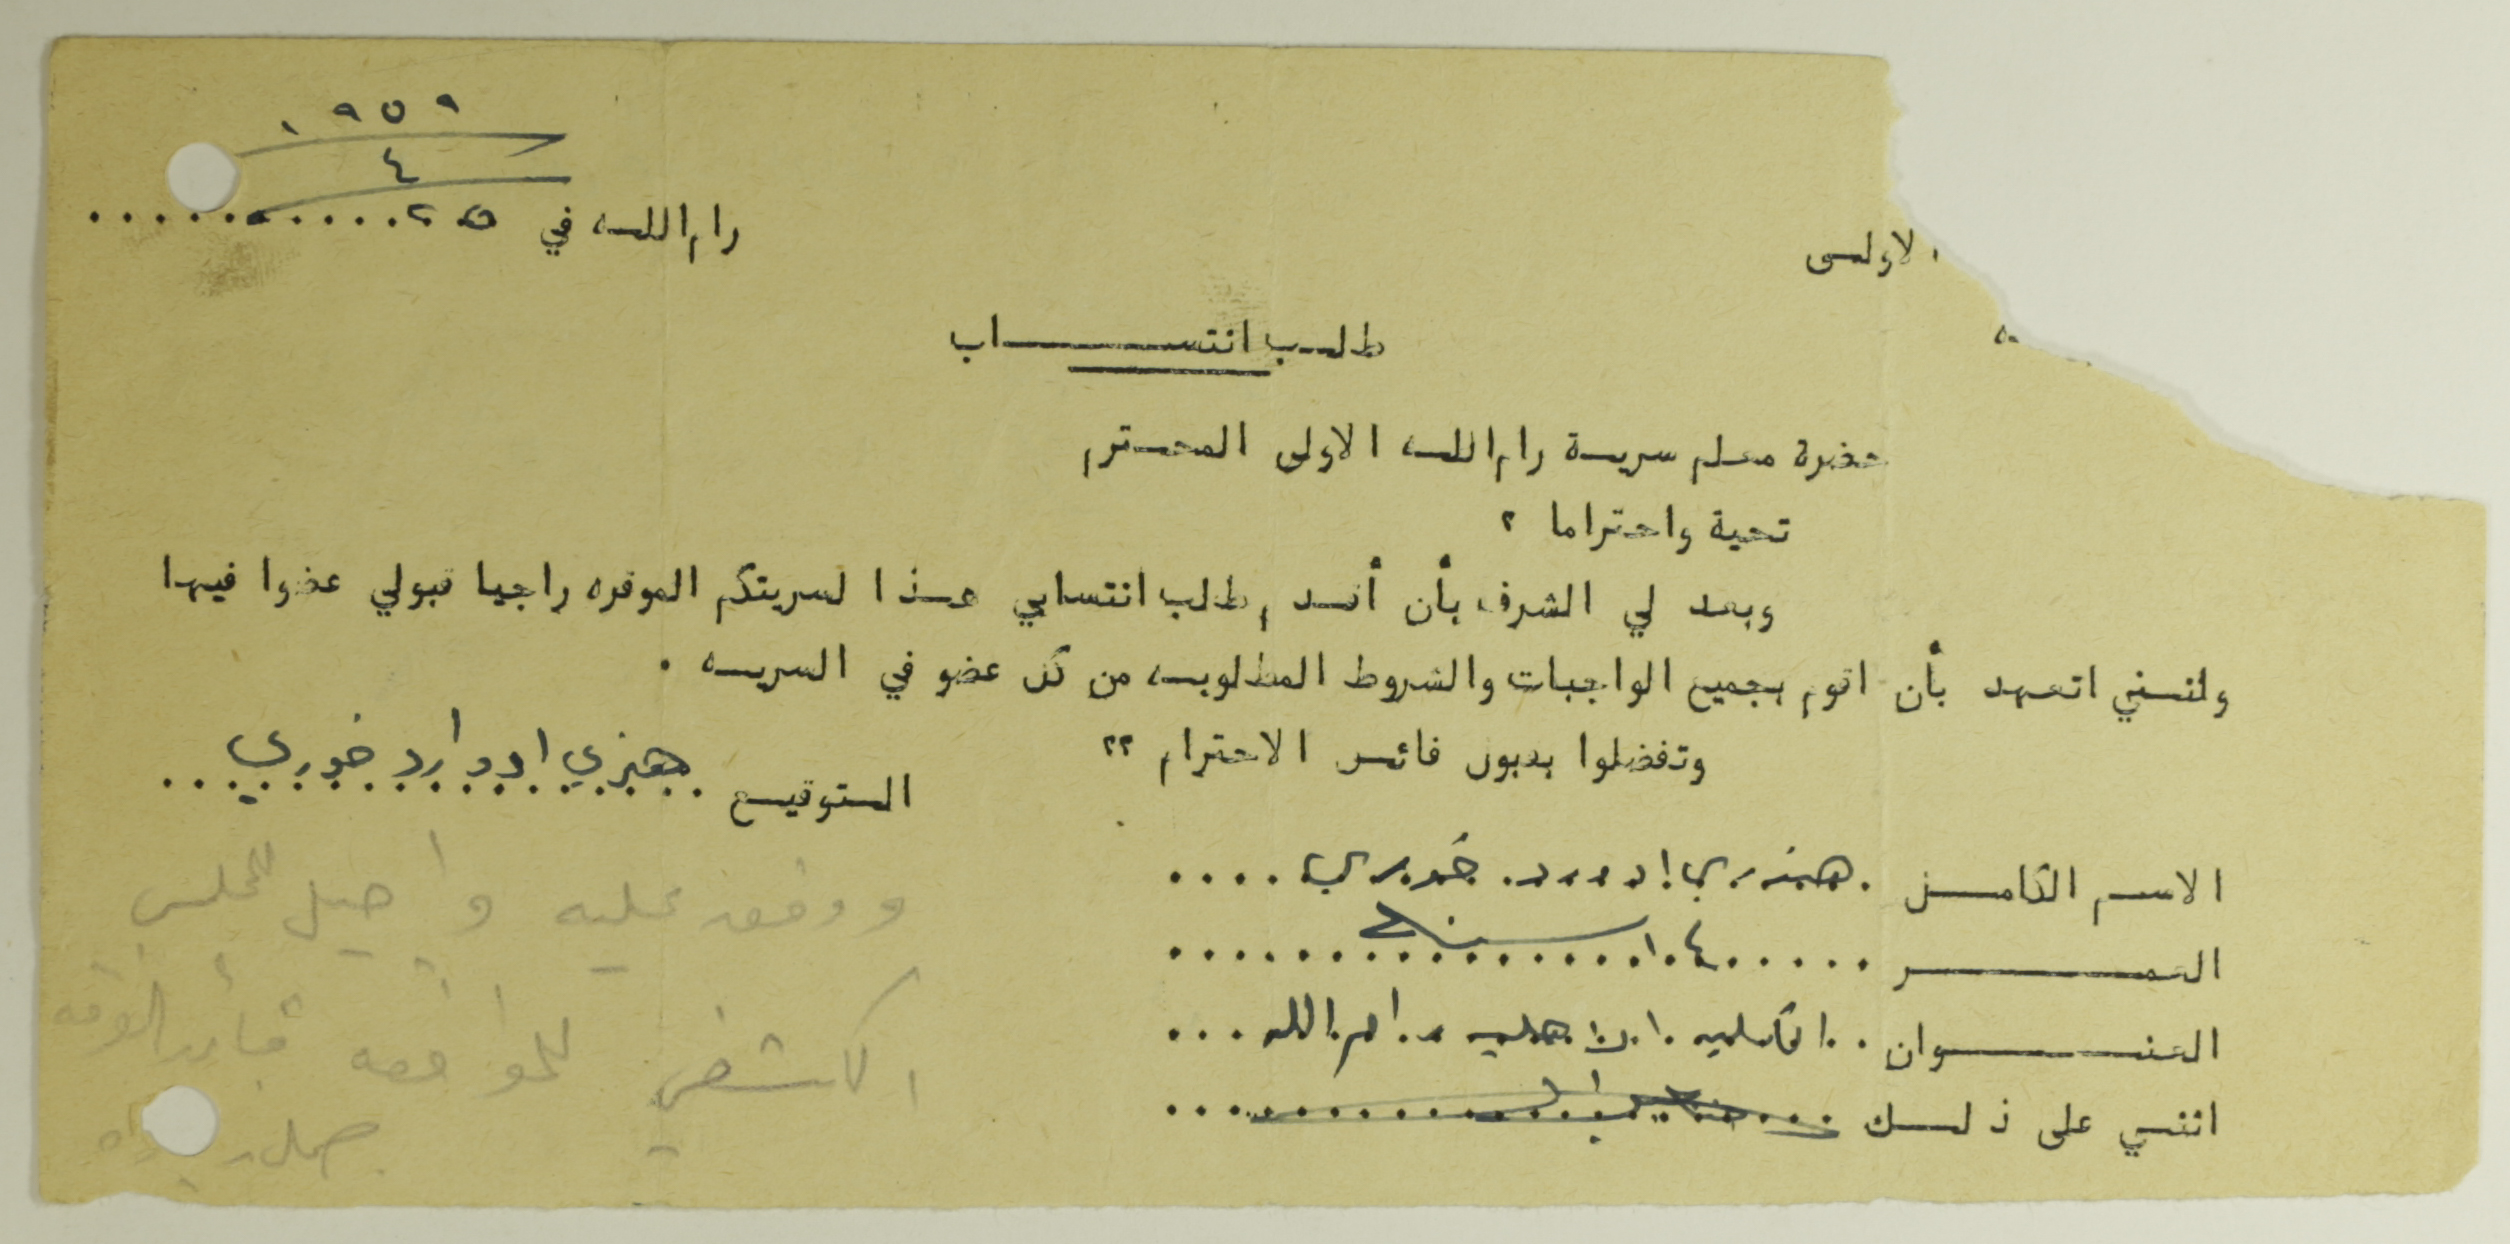 ١٩٥٩
٤
رام الله في ٢٥
الاولى
طلب انتساب
حضرة معلم سرية رام الله الاولى المحترم
تحية واحتراما ؟
وبعد لي الشرف بأن أقدم طلب انتسابي هذا لسريتكم الموقره راجيا قبولي عضوا فيها
ولكنني اتعهد بأن اقوم بجميع الواجبات والشروط المطلوبه من كل عضو في السريه .
وتفضلوا بقبول فائق الاحترام ؟؟
التوقيع هنري ادوارد خوري
الاسم الكامل هنري ادورد خوري
العمر ١٤ سنة
العنوان الكليه الاهليه رام الله
اثني على ذلك
ووفق عليه واحيل للمجلس
الكشفي للموافقه قائد الفرقه